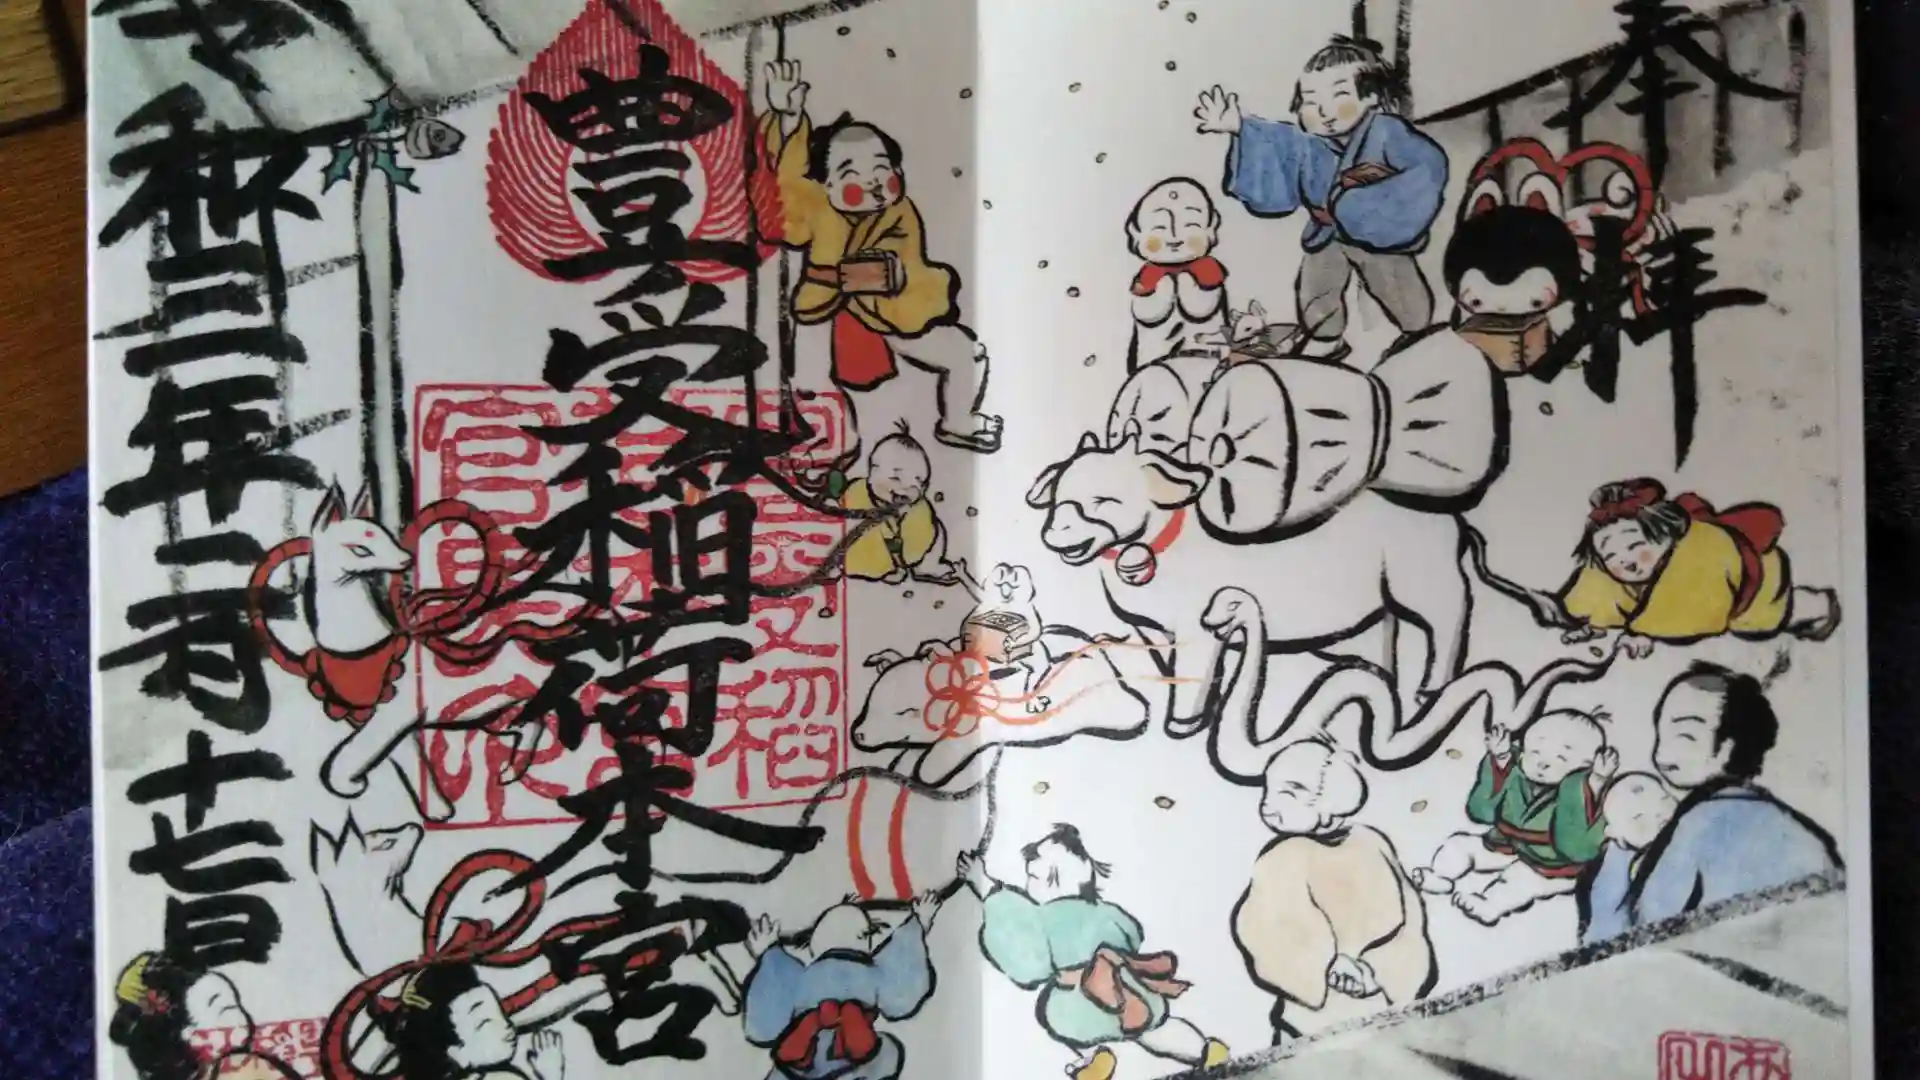 奉拝
豊受稲荷本宮
令和三年二月十七日